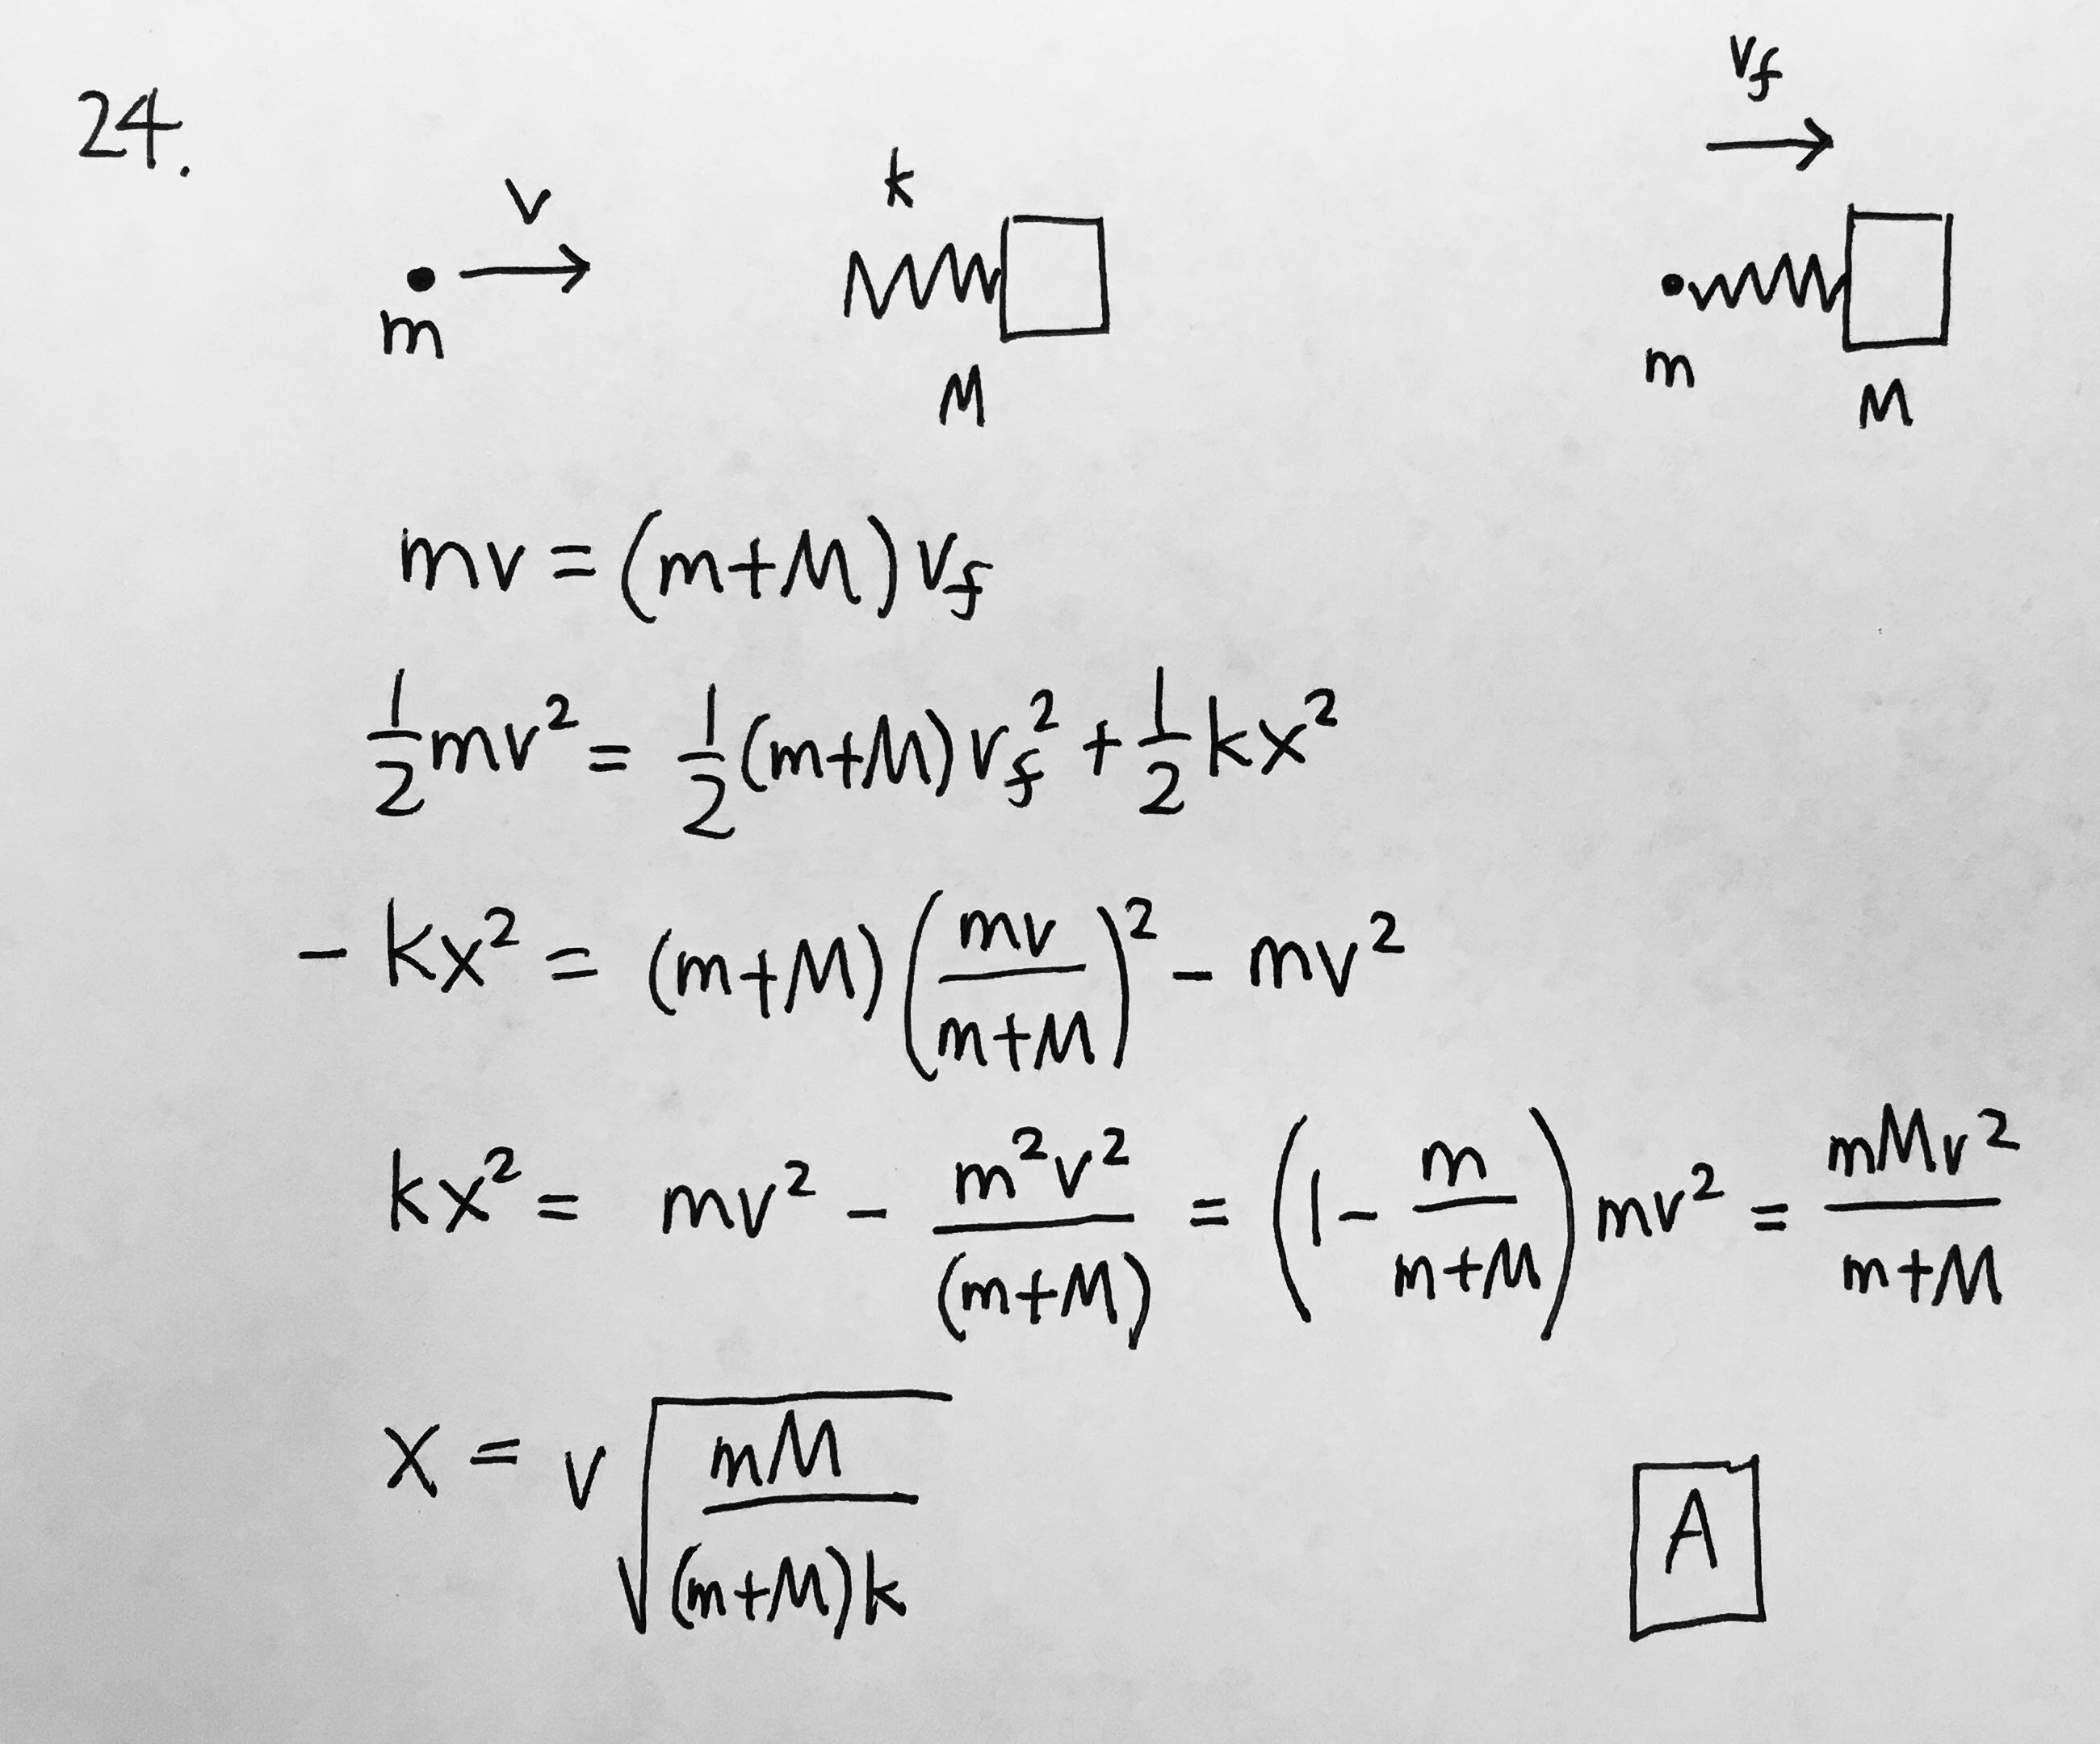 24.
v
m
k
M
v_f
m
M
mv = (m+M) v_f
1/2 mv² = 1/2 (m+M) v_f² + 1/2 kx²
- kx² = (m+M) (mv/(m+M))² - mv²
kx² = mv² - m²v²/(m+M) = (1 - m/(m+M)) mv² = mMv²/(m+M)
x = v √(mM/((m+M)k))
A